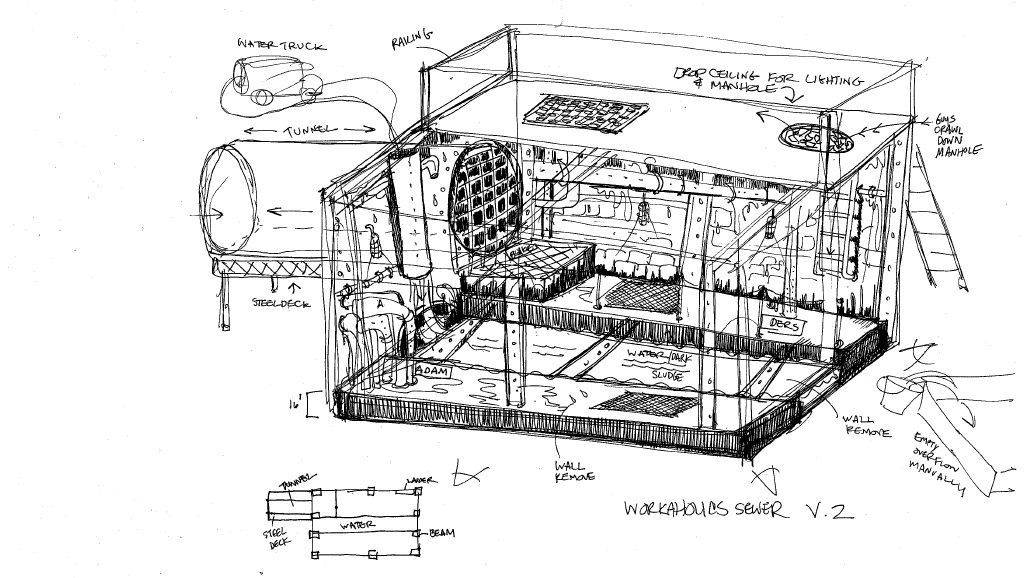 WATER TRUCK
RAILING
DROP CEILING FOR LIGHTING
& MANHOLE
GUYS
CRAWL
DOWN
MANHOLE
TUNNEL
STEEL DECK
BLAKE
A
DERS
ADAM
WATER/DARK
SLUDGE
16'
WALL
REMOVE
WALL
REMOVE
EMPTY
OVERFLOW
MANUALLY
TUNNEL
LADDER
WATER
STEEL
DECK
BEAM
WORKAHOLICS SEWER V.2